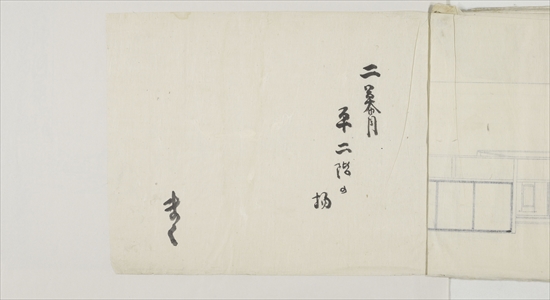 二幕目
平二階の場
まく